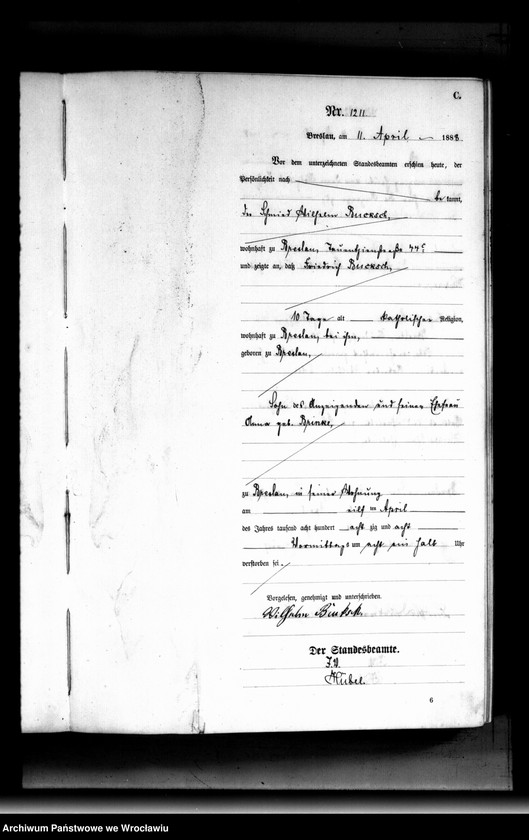 C.
Nr. 1211
Breslau, am 11. April 1888
Vor dem unterzeichneten Standesbeamten erschien heute, der
Persönlichkeit nach
be kannt,
der Schmied Wilhelm Bucksch,
wohnhaft zu Breslau, Tauentzienstraße 44
und zeigte an, daß Friedrich Bucksch,
10 Tage alt katholischer Religion,
wohnhaft zu Breslau, bei ihm,
geboren zu Breslau,
Sohn des Anzeigenden und seiner Ehefrau
Anna geb.
zu Breslau, in seiner Wohnung
am eilf ten April
des Jahres tausend acht hundert acht zig und acht
Vormittags um acht ein halb Uhr
verstorben sei.
Vorgelesen, genehmigt und unterschrieben.
Wilhelm
Der Standesbeamte.
J.V.
6
Archiwum Państwowe we Wrocławiu